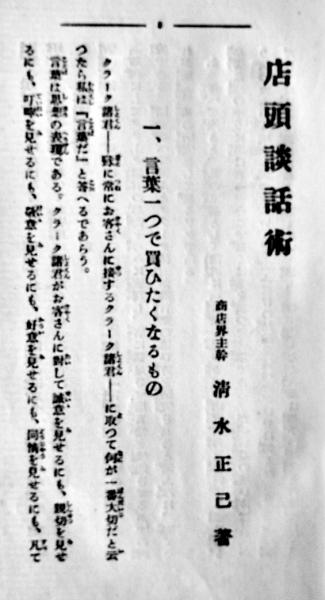 店頭談話術
商店界主幹 清水正己著
一、言葉一つで買ひたくなるもの
クラーク諸君――殊に常にお客さんに接するクラーク諸君――に取つて何が一番大切だと云
つたら私は『言葉だ』と答へるであらう。
言葉は思想の表現である。クラーク諸君がお客さんに対して誠意を見せるにも、親切を見せ
るにも、叮嚀を見せるにも、敬意を見せるにも、好意を見せるにも、同情を見せるにも、凡て